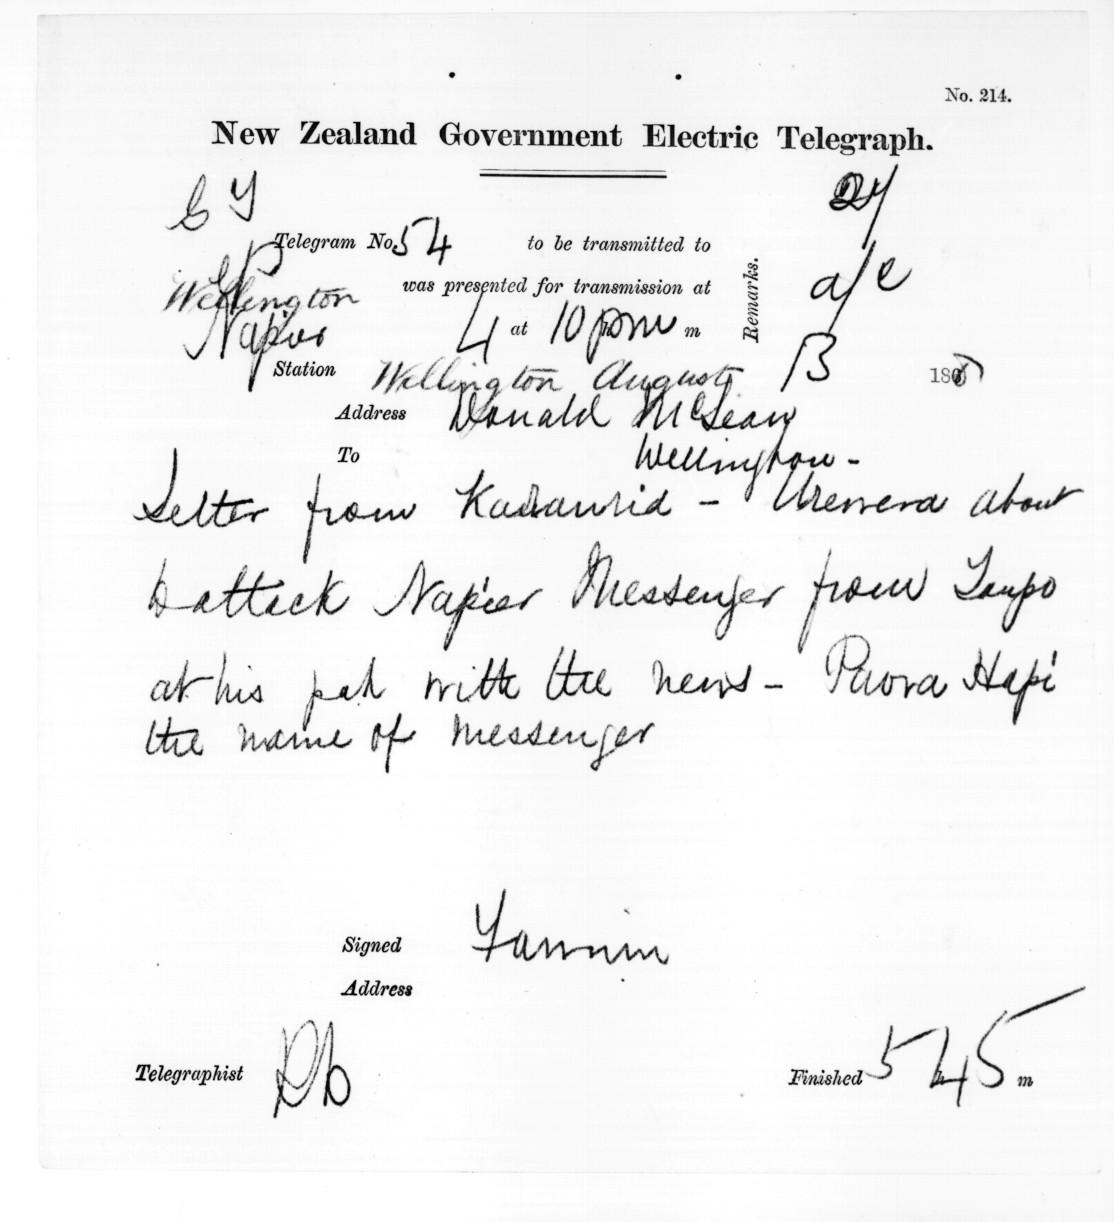 No. 214.
New Zealand Government Electric Telegraph.
Telegram No. 54 to be transmitted to
Wellington was presented for transmission at Remarks. a/c
Napier 4 at 10 pm m
Station Wellington August 13 186
Address Donald McLean
To Wellington -
Letter from - Urewera about
to attack Napier Messenger from Taupo
at his pah with the news - Paora Hapi
the name of messenger
Signed Fannin
Address
Telegraphist Finished 5 45 m